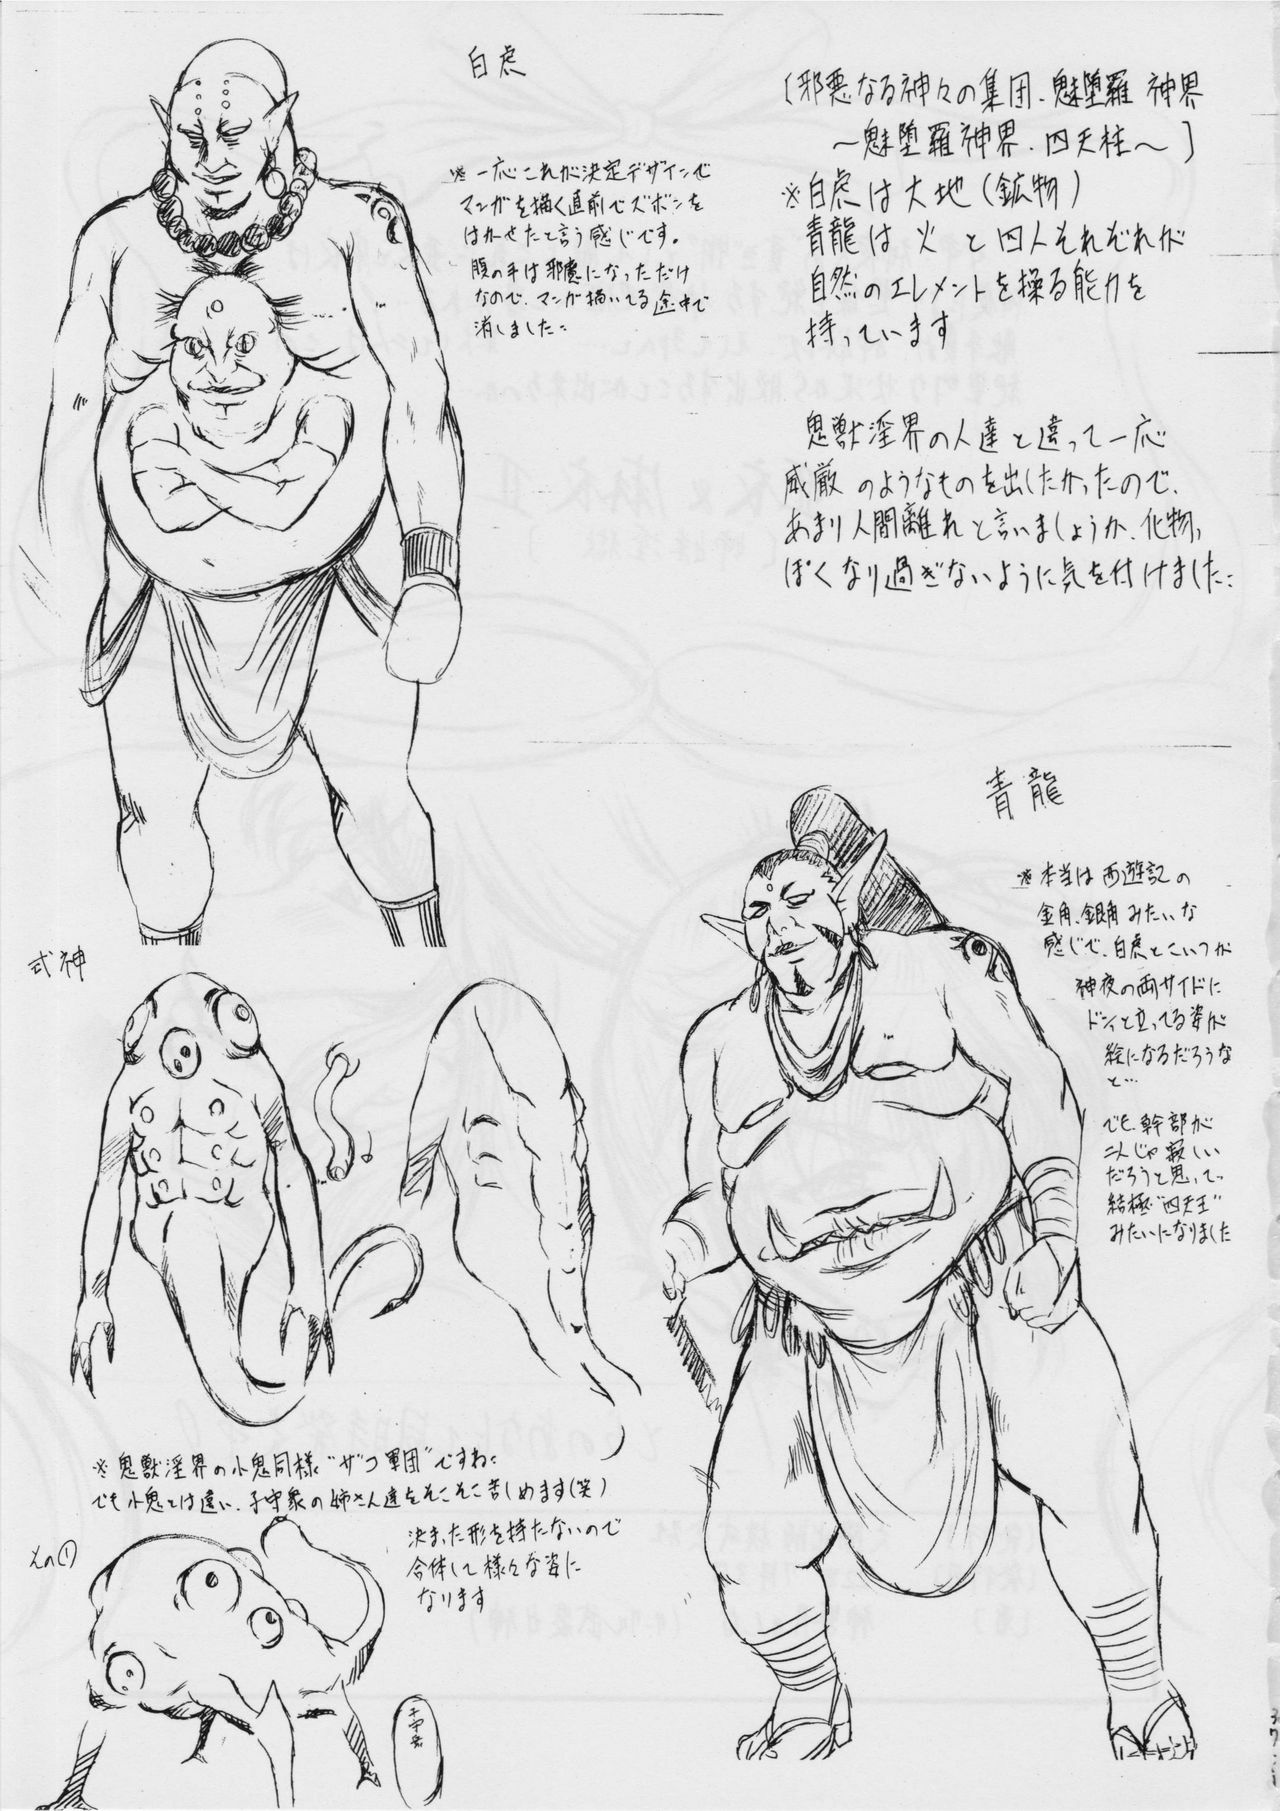 白虎
※一応これが決定デザインで
マンガを描く直前でズボンを
はかせたと言う感じです。
腹の手は邪魔になっただけ
なので、マンガ描いてる途中で
消しました…
〔邪悪なる神々の集団、魅堕羅 神界
～魅堕羅神界、四天柱～〕
※白虎は大地(鉱物)
青龍は火と四人それぞれが
自然のエレメントを操る能力を
持っています
鬼獣淫界の人達と違って一応
威厳のようなものを出したかったので、
あまり人間離れと言いましょうか、化物っ
ぽくなり過ぎないように気を付けました…
青龍
※本当は西遊記の
金角、銀角みたいな
感じで、白虎とこいつが
神夜の両サイドに
ドンと立ってる姿が
絵になるだろうな
と…
でも幹部が
二人じゃ寂しい
だろうと思って
結極"四天王"
みたいになりました
式神
※鬼獣淫界の小鬼同様"ザコ軍団"ですね…
でも小鬼とは違い、子守衆の姉さん達をそこそこ苦しめます(笑)
決まった形を持たないので
合体して様々な姿に
なります
その①